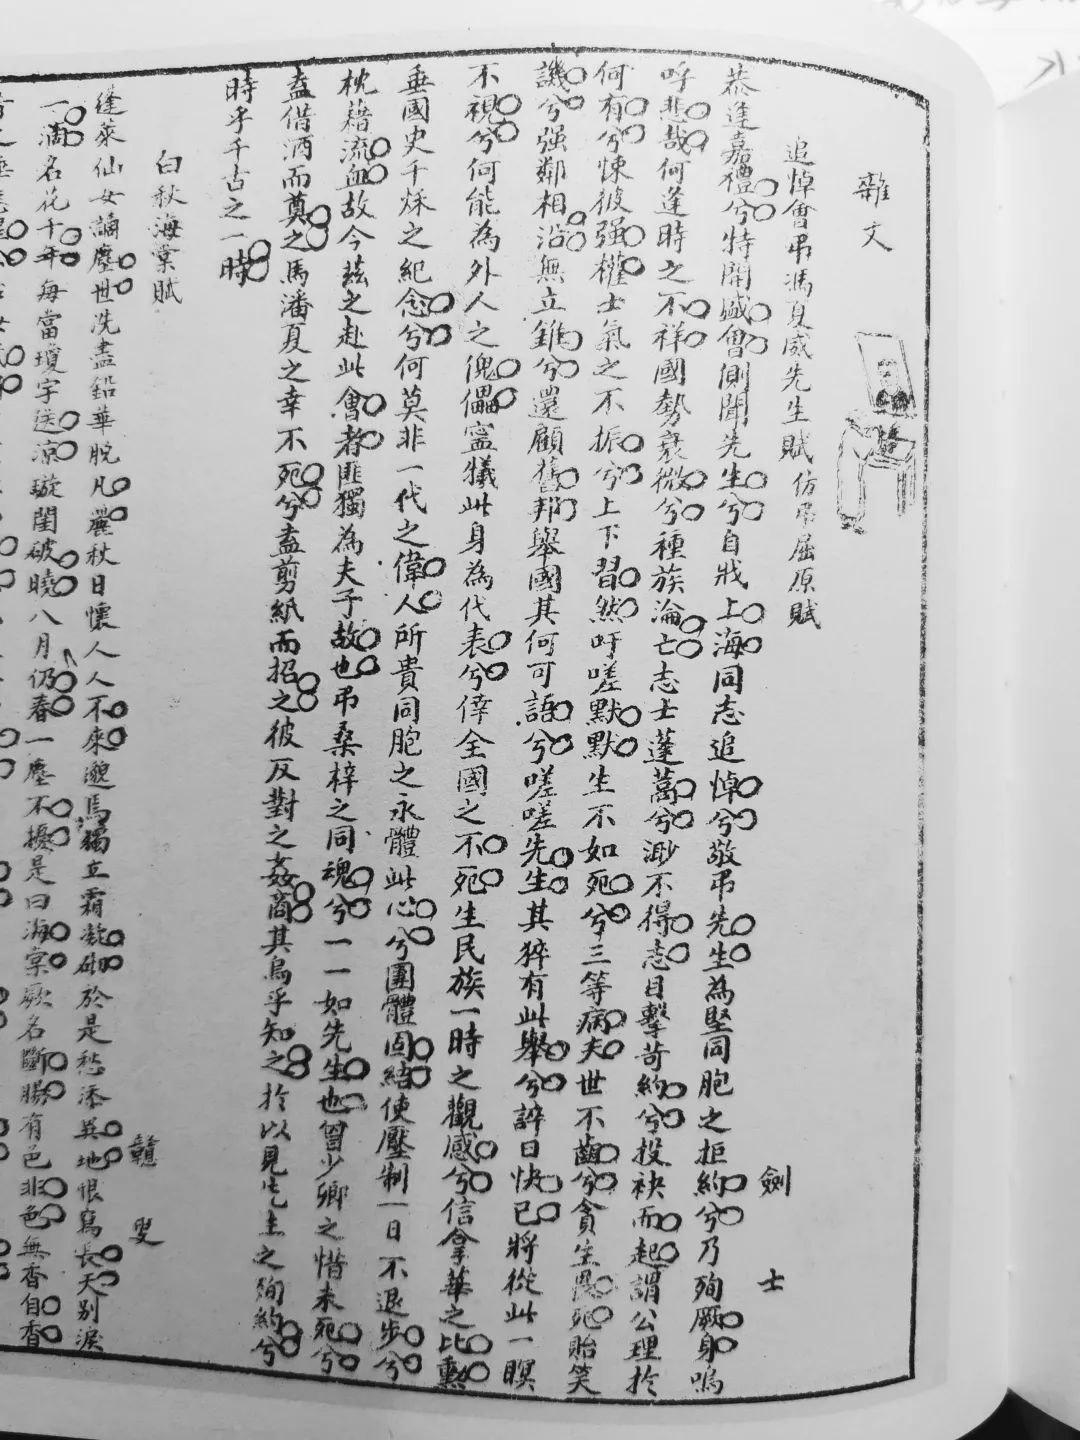 雜文
追悼會弔馮夏威先生賦仿弔屈原賦
劍士
恭逢嘉禮兮特開盛會側聞先生兮自戕上海同志追悼兮敬弔先生為堅同胞之拒約兮乃殉厥身嗚
呼悲哉何逢時之不祥國勢衰微兮種族淪亡志士蓬蒿兮渺不得志目擊苛約兮投袂而起謂公理於
何有兮悚彼强權士氣之不振兮上下習然吁嗟默默生不如死兮三等病夫世不齒兮貪生畏死貽笑
譏兮强鄰相沿無立錐兮還顧舊邦舉國其何可語兮嗟嗟先生其猝有此舉兮誶曰快已將從此一瞑
不視兮何能為外人之傀儡寍犧此身為代表兮倖全國之不死生民族一時之觀感兮信拿華之比勳
垂國史千秌之紀念兮何莫非一代之偉人所貴同胞之永體此心兮團體固結使壓制一日不退步兮
枕藉流血故今茲之赴此會者匪獨為夫子故也弔桑梓之同魂兮一一如先生也曾少卿之惜未死兮
盍借酒而奠之馬潘夏之幸不死兮盍剪紙而招之彼反對之姦商其烏乎知之於以見先生之殉約兮
時乎千古之一時
白秋海棠賦
贛叟
蓬萊仙女謫塵世洗盡鉛華脫凡麗秋日懷人人不來邈焉獨立霜凝砌於是愁添異地恨寫長天别淚
一滴名花十年每當瓊宇送涼璇閨破曉八月仍春一塵不擾是曰海棠厥名斷腸有色非色無香自香